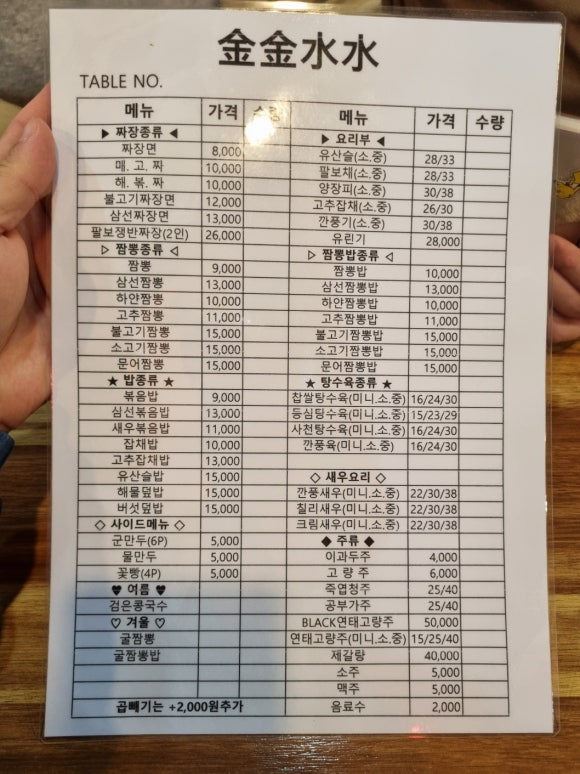 金金水水
TABLE NO.
메뉴 가격 수량 메뉴 가격 수량
▶ 짜장종류 ◀
짜장면 8,000
매. 고. 짜 10,000
해. 볶. 짜 10,000
불고기짜장면 12,000
삼선짜장면 13,000
팔보쟁반짜장(2인) 26,000
▷ 짬뽕종류 ◁
짬뽕 9,000
삼선짬뽕 13,000
하얀짬뽕 10,000
고추짬뽕 11,000
불고기짬뽕 15,000
소고기짬뽕 15,000
문어짬뽕 15,000
★ 밥종류 ★
볶음밥 9,000
삼선볶음밥 13,000
새우볶음밥 11,000
잡채밥 10,000
고추잡채밥 13,000
유산슬밥 15,000
해물덮밥 15,000
버섯덮밥 15,000
◇ 사이드메뉴 ◇
군만두(6P) 5,000
물만두 5,000
꽃빵(4P) 5,000
♥ 여름 ♥
검은콩국수
♡ 겨울 ♡
굴짬뽕
굴짬뽕밥
곱빼기는 +2,000원추가
▶ 요리부 ◀
유산슬(소.중) 28/33
팔보채(소.중) 28/33
양장피(소.중) 30/38
고추잡채(소.중) 26/30
깐풍기(소.중) 30/38
유린기 28,000
▷ 짬뽕밥종류 ◁
짬뽕밥 10,000
삼선짬뽕밥 13,000
하얀짬뽕밥 10,000
고추짬뽕밥 11,000
불고기짬뽕밥 15,000
소고기짬뽕밥 15,000
문어짬뽕밥 15,000
★ 탕수육종류 ★
찹쌀탕수육(미니.소.중) 16/24/30
등심탕수육(미니.소.중) 15/23/29
사천탕수육(미니.소.중) 16/24/30
깐풍육(미니.소.중) 16/24/30
◇ 새우요리 ◇
깐풍새우(미니.소.중) 22/30/38
칠리새우(미니.소.중) 22/30/38
크림새우(미니.소.중) 22/30/38
◆ 주류 ◆
이과두주 4,000
고 량 주 6,000
죽엽청주 25/40
공부가주 25/40
BLACK연태고량주 50,000
연태고량주(미니.소.중) 15/25/40
제갈량 40,000
소주 5,000
맥주 5,000
음료수 2,000